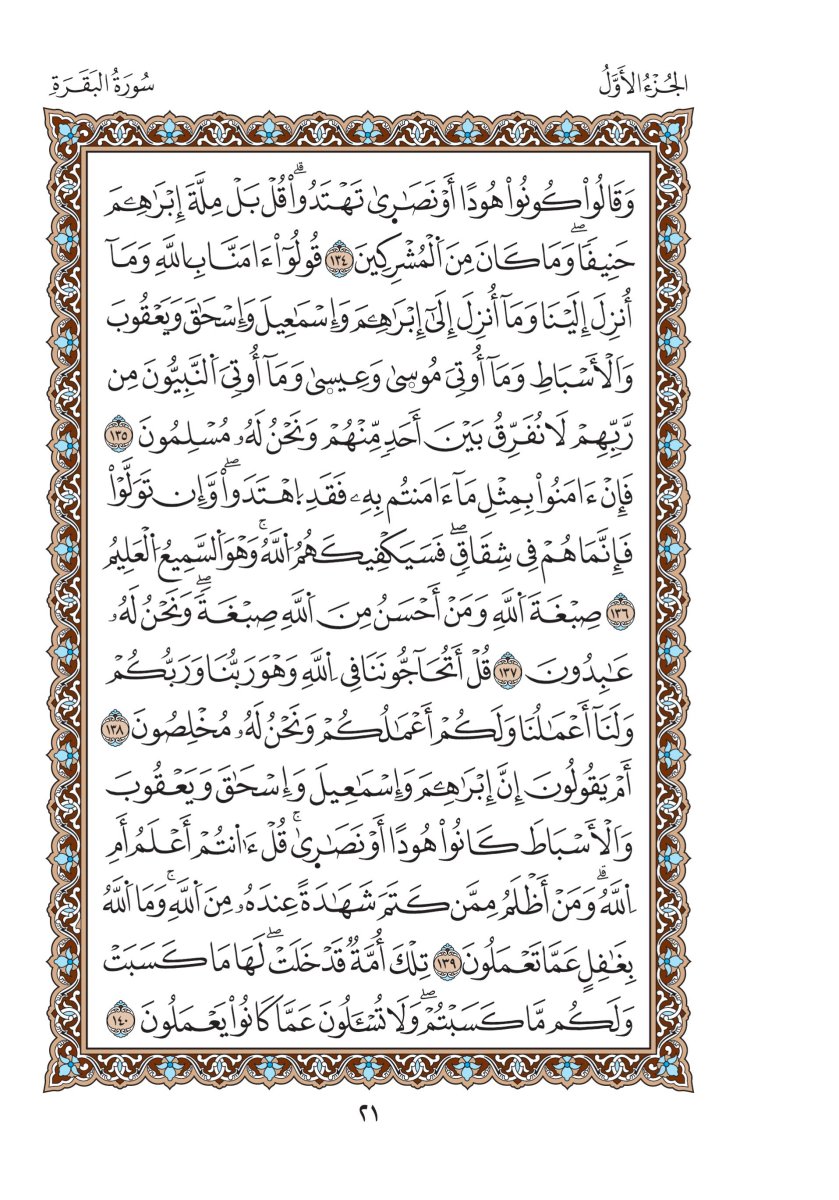 الجُزْءُ الأَوَّلُ
سُورَةُ البَقَرَةِ
وَقَالُواْ كُونُواْ هُودًا أَوْ نَصَٰرِىٰ تَهْتَدُواْۗ قُلْ بَلْ مِلَّةَ إِبْرَٰهِـۧمَ
حَنِيفًاۖ وَمَا كَانَ مِنَ اَ۬لْمُشْرِكِينَ ١٣٤ قُولُوٓاْ ءَامَنَّا بِاللَّهِ وَمَآ
أُنزِلَ إِلَيْنَا وَمَآ أُنزِلَ إِلَىٰٓ إِبْرَٰهِـۧمَ وَإِسْمَٰعِيلَ وَإِسْحَٰقَ وَيَعْقُوبَ
وَالْأَسْبَاطِ وَمَآ أُوتِىَ مُوسٜىٰ وَعِيسٜىٰ وَمَآ أُوتِىَ اَ۬لنَّبِيُّونَ مِن
رَّبِّهِمْ لَا نُفَرِّقُ بَيْنَ أَحَدٍ مِّنْهُمْ وَنَحْنُ لَهُۥ مُسْلِمُونَ ١٣٥
فَإِنْ ءَامَنُواْ بِمِثْلِ مَآ ءَامَنتُم بِهِۦ فَقَدِ اِ۪هْتَدَواْۖ وَّإِن تَوَلَّوْاْ
فَإِنَّمَا هُمْ فِى شِقَاقٍۖ فَسَيَكْفِيكَهُمُ اُ۬للَّهُۚ وَهْوَ اَ۬لسَّمِيعُ اُ۬لْعَلِيمُ
١٣٦ صِبْغَةَ اَ۬للَّهِ وَمَنْ أَحْسَنُ مِنَ اَ۬للَّهِ صِبْغَةًۖ وَنَحْنُ لَهُۥ
عَٰبِدُونَ ١٣٧ قُلْ أَتُحَآجُّونَنَا فِى اِ۬للَّهِ وَهْوَ رَبُّنَا وَرَبُّكُمْ
وَلَنَآ أَعْمَٰلُنَا وَلَكُمْ أَعْمَٰلُكُمْ وَنَحْنُ لَهُۥ مُخْلِصُونَ ١٣٨
أَمْ يَقُولُونَ إِنَّ إِبْرَٰهِـۧمَ وَإِسْمَٰعِيلَ وَإِسْحَٰقَ وَيَعْقُوبَ
وَالْأَسْبَاطَ كَانُواْ هُودًا أَوْ نَصَٰرِىٰۚ قُلْ ءَا۬نتُمْ أَعْلَمُ أَمِ
اِ۬للَّهُۗ وَمَنْ أَظْلَمُ مِمَّن كَتَمَ شَهَٰدَةً عِندَهُۥ مِنَ اَ۬للَّهِۚ وَمَا اَ۬للَّهُ
بِغَٰفِلٍ عَمَّا تَعْمَلُونَ ١٣٩ تِلْكَ أُمَّةٌ قَدْ خَلَتْۖ لَهَا مَا كَسَبَتْ
وَلَكُم مَّا كَسَبْتُمْۖ وَلَا تُسْـَٔلُونَ عَمَّا كَانُواْ يَعْمَلُونَ ١٤٠
٢١